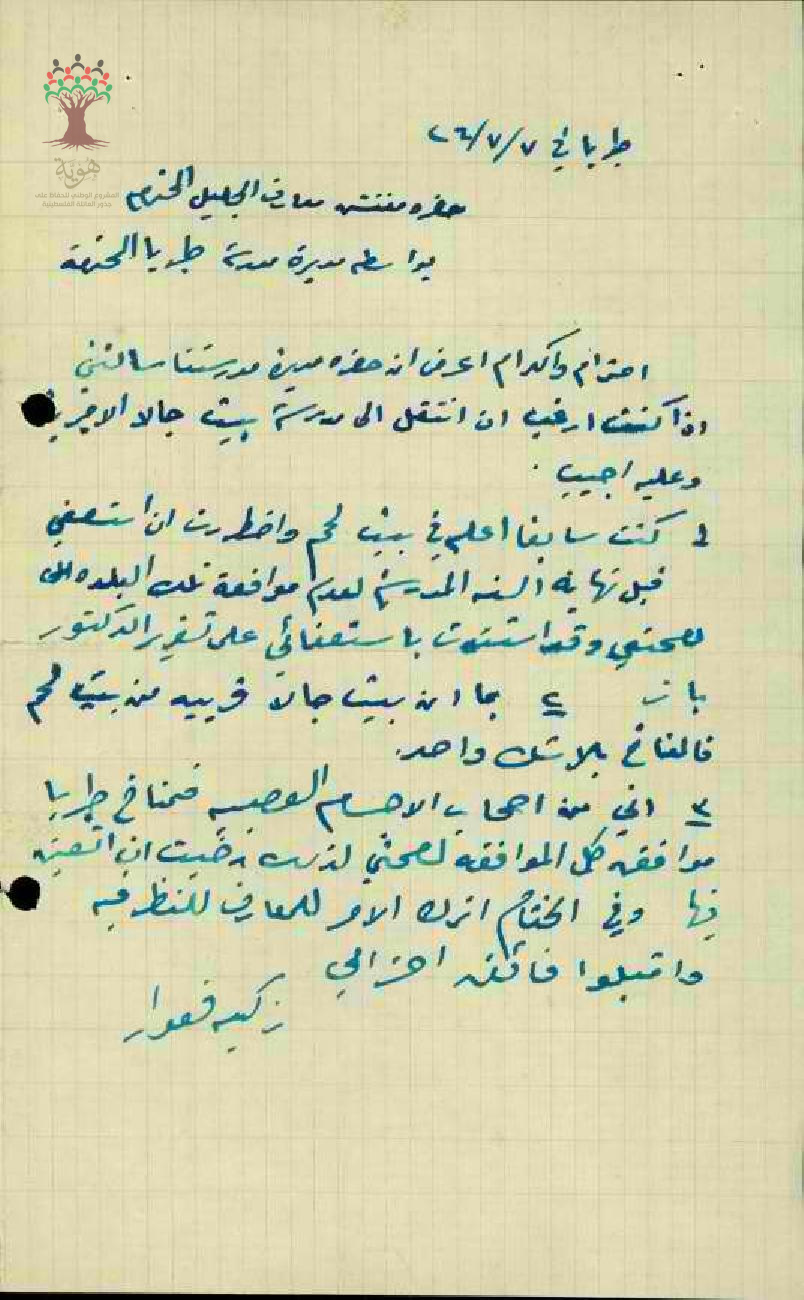 هوية
المشروع الوطني للحفاظ على
جذور العائلة الفلسطينية
طبريا في ٧/٧/٢٦
حضرة مفتش معارف الجليل المحترم
بواسطة مديرة مدرسة طبريا المحترمة
احترام واكرام اعرض ان حضرة مديرة مدرستنا سالتني
اذا كنت ارغب ان انتقل الى مدرسة بيت جالا الاميرية
وعليه اجيب .
١ كنت سابقا اعلم في بيت لحم واضطررت ان استعفي
قبل نهاية السنه المدرسية لعدم موافقة تلك البلده
لصحتي وقد استندت باستعفائي على تقرير الدكتور
٢ بما ان بيت جالا قريبه من بيت لحم
فالمناخ بلا شك واحد.
٣ اني من اصحاب الاجسام العصبيه فمناخ طبريا
موافق كل الموافقه لصحتي لذلك رضيت ان اتعين
فيها وفي الختام اترك الامر للمعارف للنظر فيه
واقبلوا فائق احترامي
زكيه قعوار